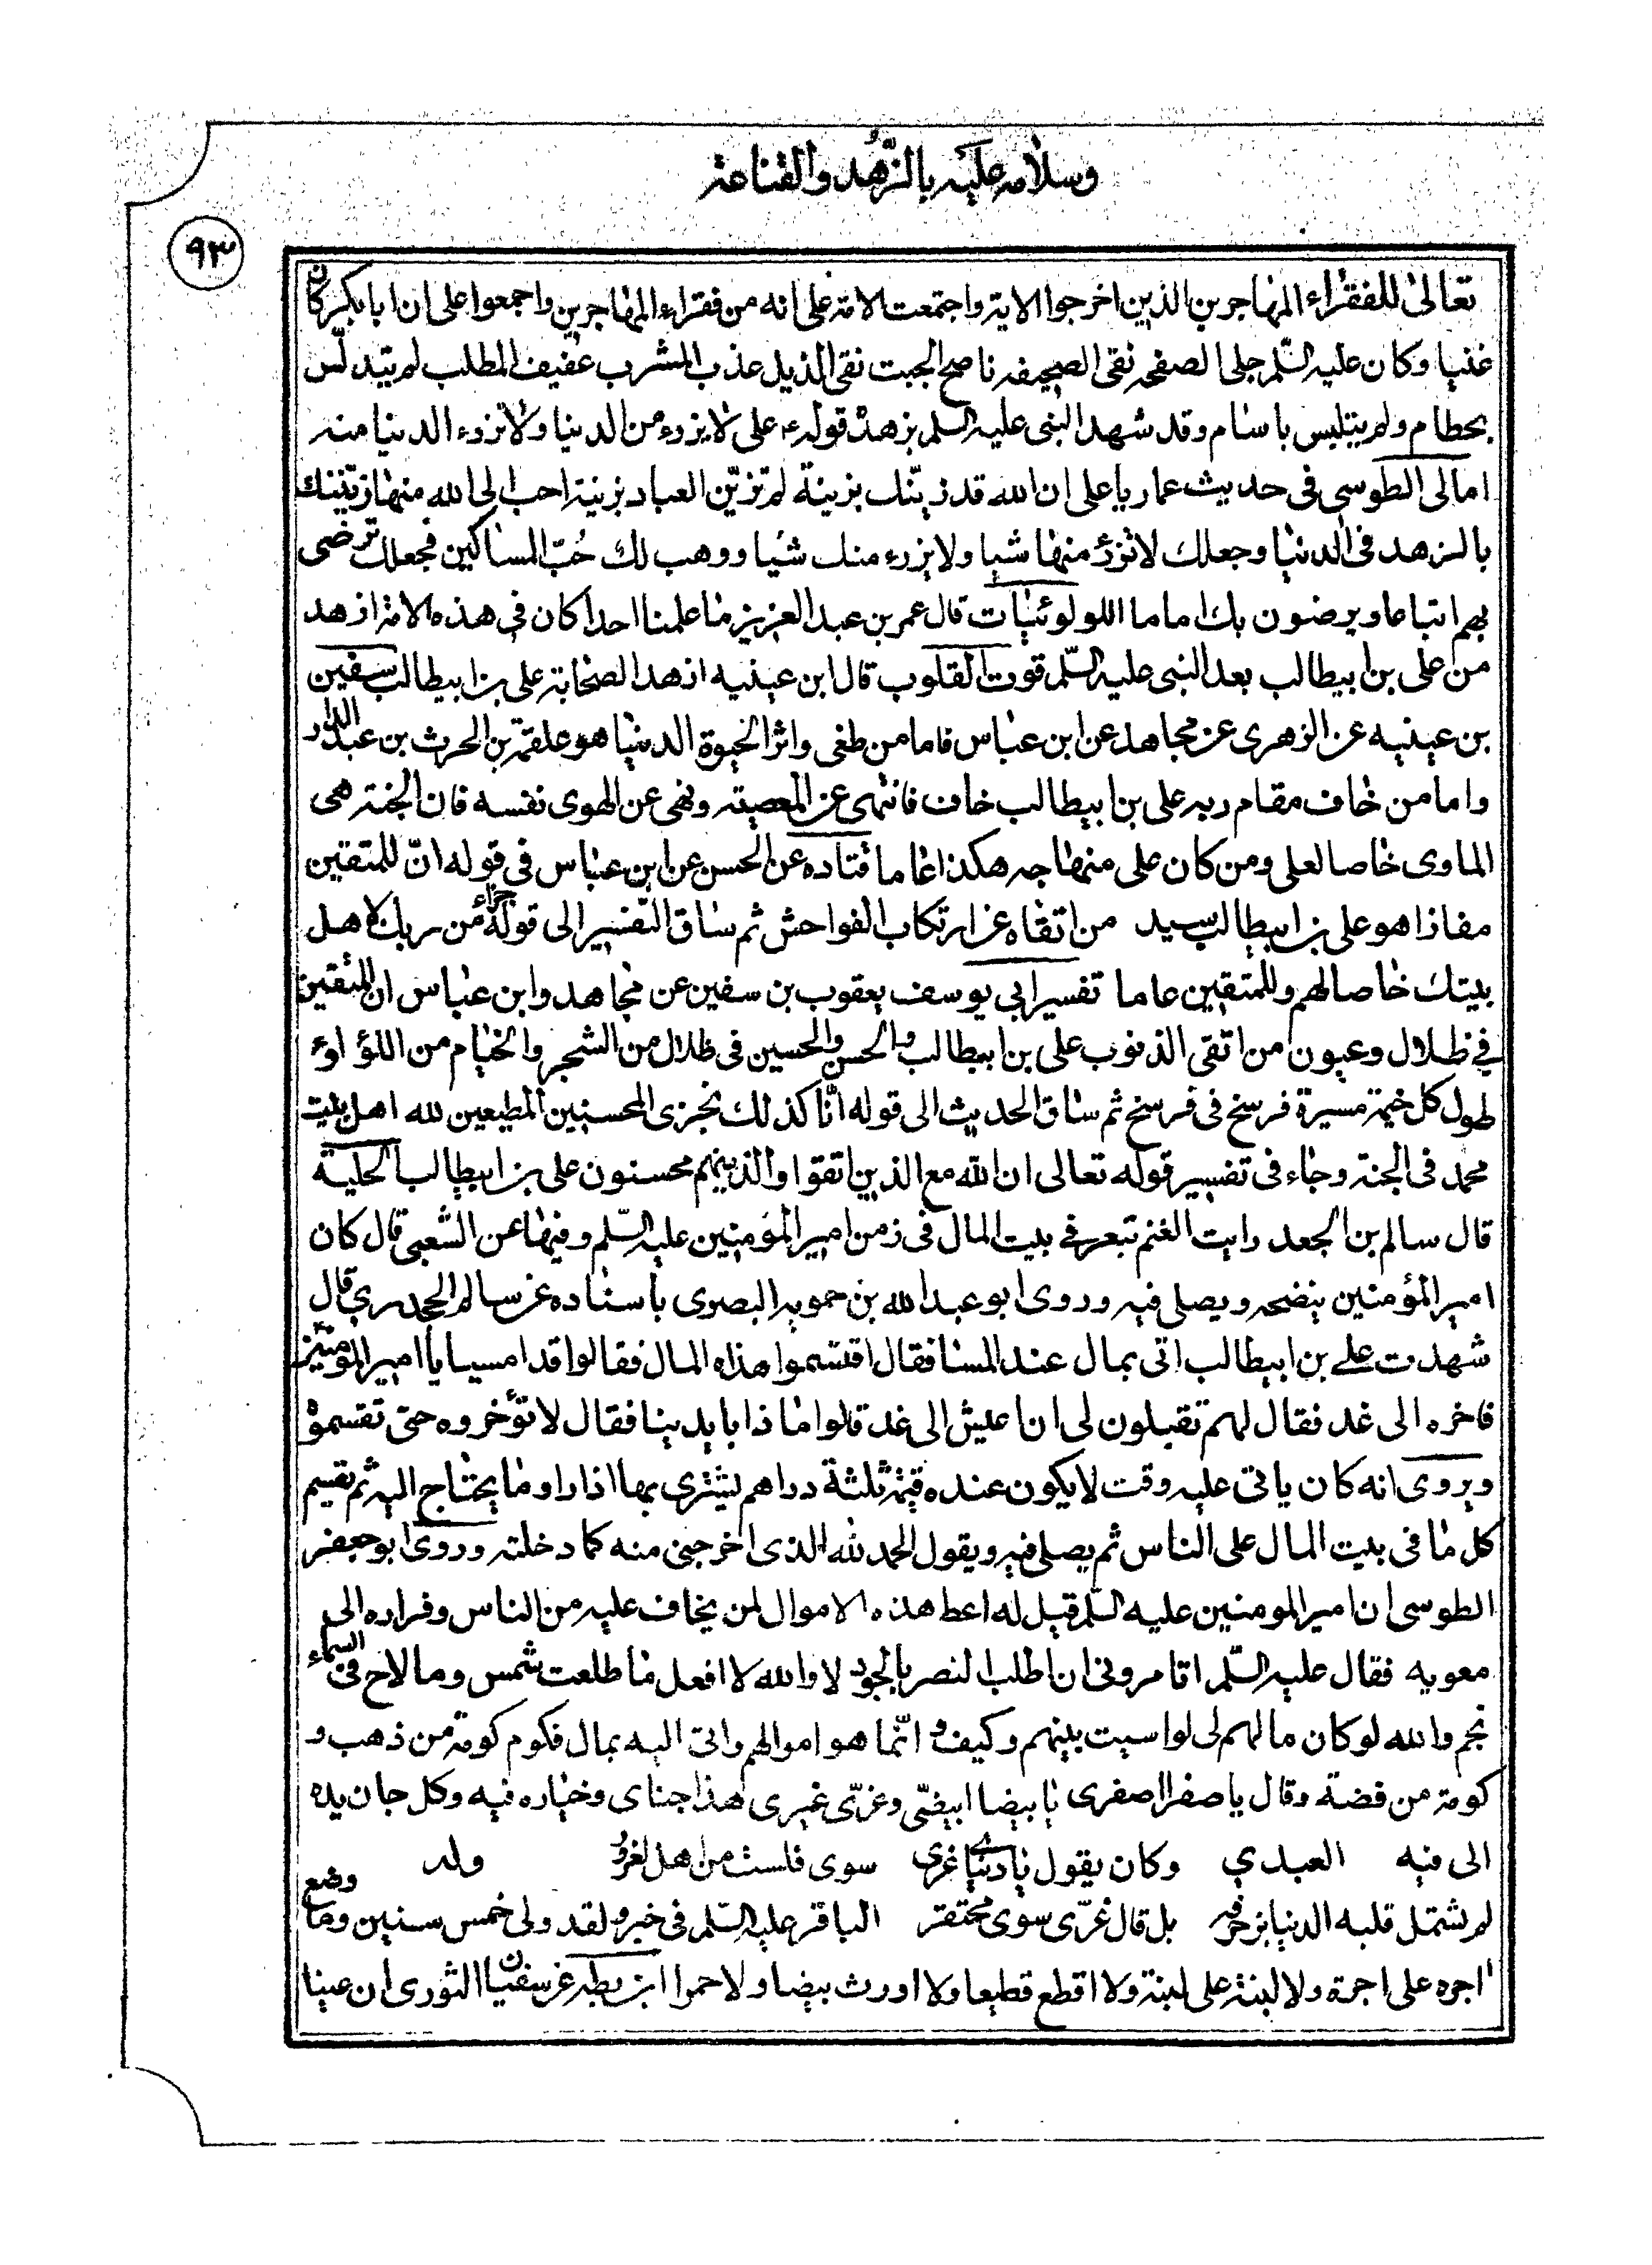 وسلامه عليه بالزُّهد والقناعة
٩٣
تعالى للفقراء المهاجرين الذين اخرجوا الاية واجتمعت الامة على انه من فقراء المهاجرين واجمعوا على ان ابا بكر كان
غنيا وكان عليه السّلم جلى الصفحه نقى الصحيفه ناصح الجيت نقى الذيل عذب المشرب عفيف المطلب لم يتدلّس
بحطام ولم يتلبس باسام وقد شهد النبى عليه السلم بزهده قوله ع على لا يزرء من الدنيا ولا تزرء الدنيا منه
امالى الطوسى فى حديث عمار يا على ان الله قد زيّنك بزينة لم تزيّن العباد بزينة احب الى الله منها زيّنك
بالزهد فى الدنيا وجعلك لا تزرؤ منها شيا ولا يزرء منك شيا ووهب لك حُبّ المساكين فجعلك ترضى
بهم اتباعا ويرضون بك اماما اللولوئيات قال عمر بن عبد العزيز ما علمنا احدا كان فى هذه الامة ازهد
من على بن ابيطالب بعد النبى عليه السّلم قوت القلوب قال ابن عيينه ازهد الصحابة على بن ابيطالب سفين
بن عيينه عن الزهرى عن مجاهد عن ابن عباس فاما من طغى واثر الحيوة الدنيا هو علقمة بن الحرث بن عبد الدار
واما من خاف مقام ربه على بن ابيطالب خاف فانتهى عن المعصية ونهى عن الهوى نفسه فان الجنة هى
الماوى خاصا لعلى ومن كان على منهاجه هكذا عاما قتاده عن الحسن عن ابن عباس فى قوله انّ للمتقين
مفازا هو على بن ابيطالب سيد من اتقاه عن ارتكاب الفواحش ثم ساق التفسير الى قوله جزاء من ربك لاهل
بيتك خاصا لهم وللمتقين عاما تفسير ابى يوسف يعقوب بن سفين عن مجاهد وابن عباس ان المتقين
فى ظلال وعيون من اتقى الذنوب على بن ابيطالب والحسن والحسين فى ظلال من الشجر والخيام من اللؤلوء
طول كل خيمة مسيرة فرسخ فى فرسخ ثم ساق الحديث الى قوله انّا كذلك نجزى المحسنين المطيعين لله اهل بيت
محمد فى الجنة وجاء فى تفسير قوله تعالى ان الله مع الذين اتقوا والذينهم محسنون على بن ابيطالب الحلية
قال سالم بن الجعد رايت الغنم تبعر فى بيت المال فى زمن امير المؤمنين عليه السّلم وفيها عن الشعبى قال كان
امير المؤمنين ينضحه ويصلى فيه وروى ابو عبد الله بن حمويه البصرى باسناده عن سالم الجحدرى قال
شهدت على بن ابيطالب اتى بمال عند المسا فقال اقتسموا هذا المال فقالوا قد امسينا يا امير المومنين
فاخره الى غد فقال لهم تقبلون لى ان اعيش الى غد قلوا ماذا بايدينا فقال لا تؤخروه حتى تقسموه
ويروى انه كان ياتى عليه وقت لا يكون عنده قيمة ثلثة دراهم يشترى بها ازارا وما يحتاج اليه ثم يقسم
كل ما فى بيت المال على الناس ثم يصلى فيه ويقول الحمد لله الذى اخرجنى منه كما دخلته وروى ابو جعفر
الطوسى ان امير المومنين عليه السّلم قيل له اعط هذه الاموال لمن يخاف عليه من الناس وفراره الى
معويه فقال عليه السّلم اتامرونى ان اطلب النصر بالجور لا والله لا افعل ما طلعت شمس وما لاح فى السماء
نجم والله لو كان مالهم لى لواسيت بينهم وكيف و انّما هو اموالهم واتى اليه بمال فكوم كومة من ذهب و
كومة من فضة وقال يا صفرا اصفرى يا بيضا ابيضّى وغرّى غيرى هذا جناى وخياره فيه وكل جان يده
الى فيه العبدي وكان يقول يا دنيا غرى سوى فلست من اهل الغرور وله
لم يشتمل قلبه الدنيا بزخرفه بل قال غرّى سوى محتقر الباقر عليه السّلم فى خبر ولقد ولى خمس سنين وما وضع
اجره على اجرة ولا لبنة على لبنة ولا اقطع قطيعا ولا اورث بيضا ولا حمرا ابن بطه عن سفيان الثورى ان عينا